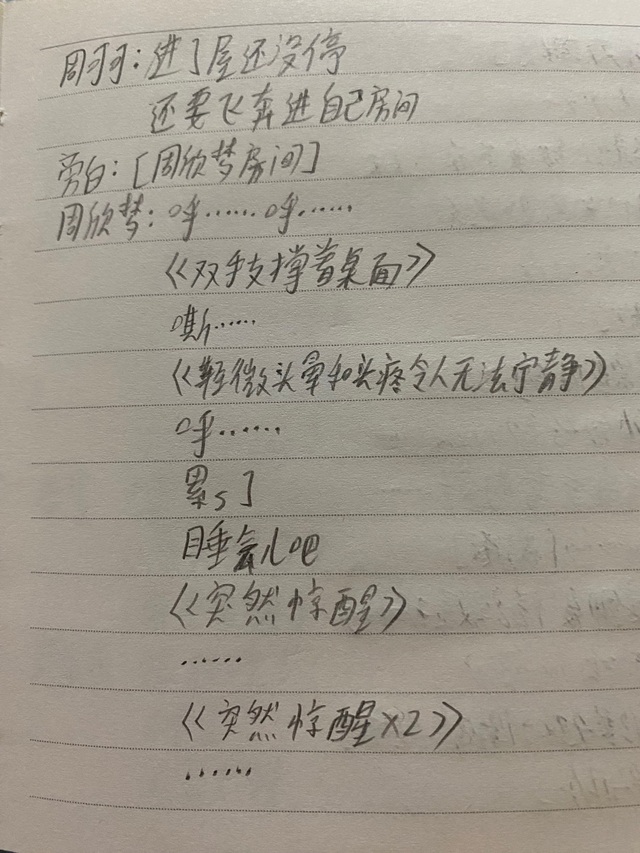 周可可：进了屋还没停
还要飞奔进自己房间
旁白：[周欣梦房间]
周欣梦：呼……呼……
《双手支撑着桌面》
嘶……
《轻微头晕和头疼令人无法宁静》
呼……
累s了
睡会儿吧
《突然惊醒》
……
《突然惊醒x2》
……